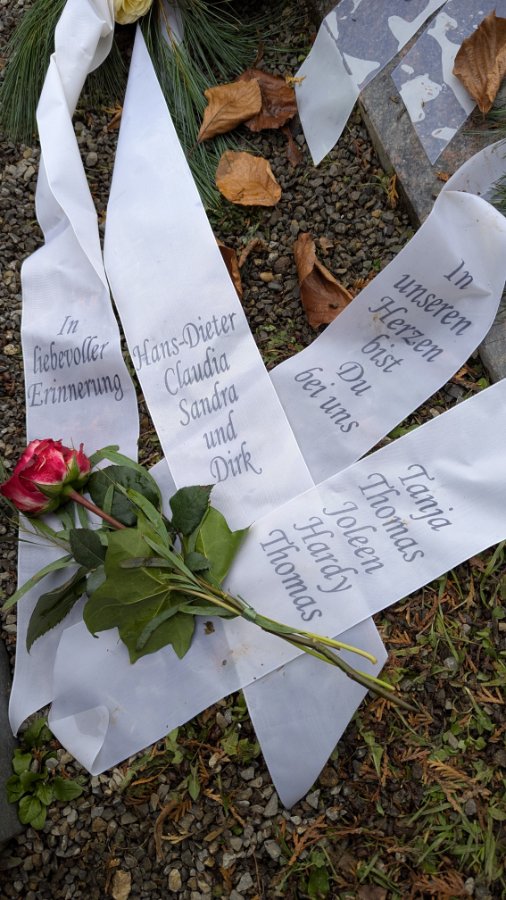 In
liebevoller
Erinnerung
Hans-Dieter
Claudia
Sandra
und
Dirk
In
unseren
Herzen
bist
Du
bei uns
Tanja
Thomas
Joleen
Hardy
Thomas